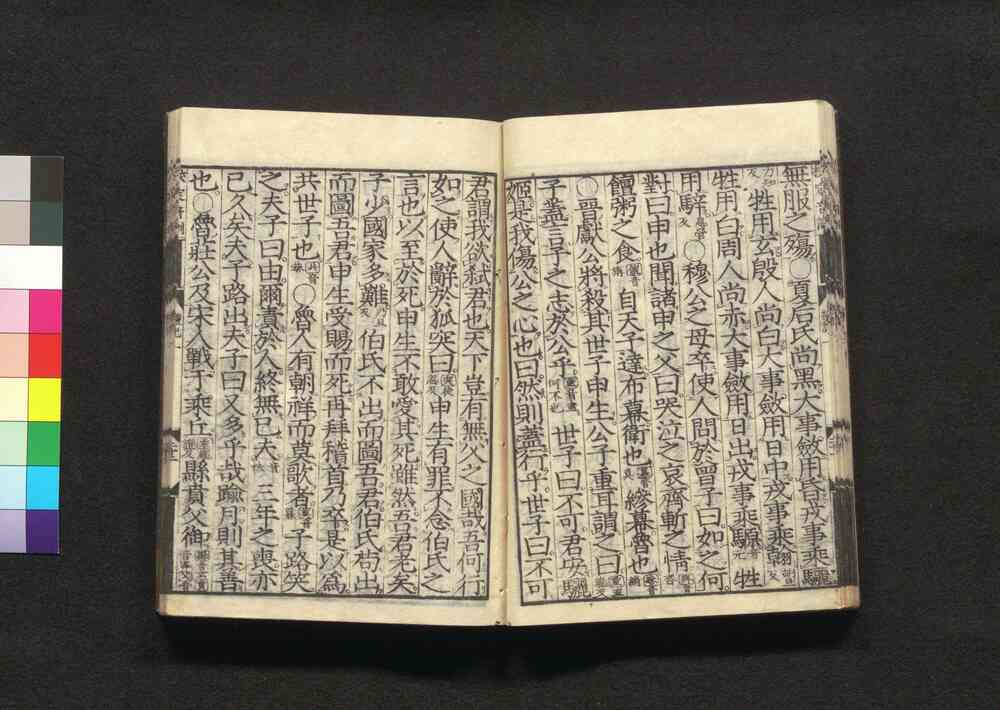 無服之殤○夏后氏尚黑大事斂用昏戎事乘驪
牲用玄殷人尚白大事斂用日中戎事乘翰
牲用白周人尚赤大事斂用日出戎事乘騵音元牲
用騂○穆公之母卒使人問於曾子曰如之何
對曰申也聞諸申之父曰哭泣之哀齊斬之情
饘粥之食自天子達布幕衛也縿幕魯也
○晉獻公將殺其世子申生公子重耳謂之曰
子蓋言子之志於公乎世子曰不可君安驪
姬是我傷公之心也曰然則蓋行乎世子曰不可
君謂我欲弑君也天下豈有無父之國哉吾何行
如之使人辭於狐突曰申生有罪不念伯氏之
言也以至於死申生不敢愛其死雖然吾君老矣
子少國家多難乃旦反伯氏不出而圖吾君伯氏苟出
而圖吾君申生受賜而死再拜稽首乃卒是以爲
共世子也共音恭○魯人有朝祥而莫歌者子路笑
之夫子曰由爾責於人終無已夫音扶三年之喪亦
已久矣夫子路出夫子曰又多乎哉踰月則其善
也○魯莊公及宋人戰于乘丘縣賁父御